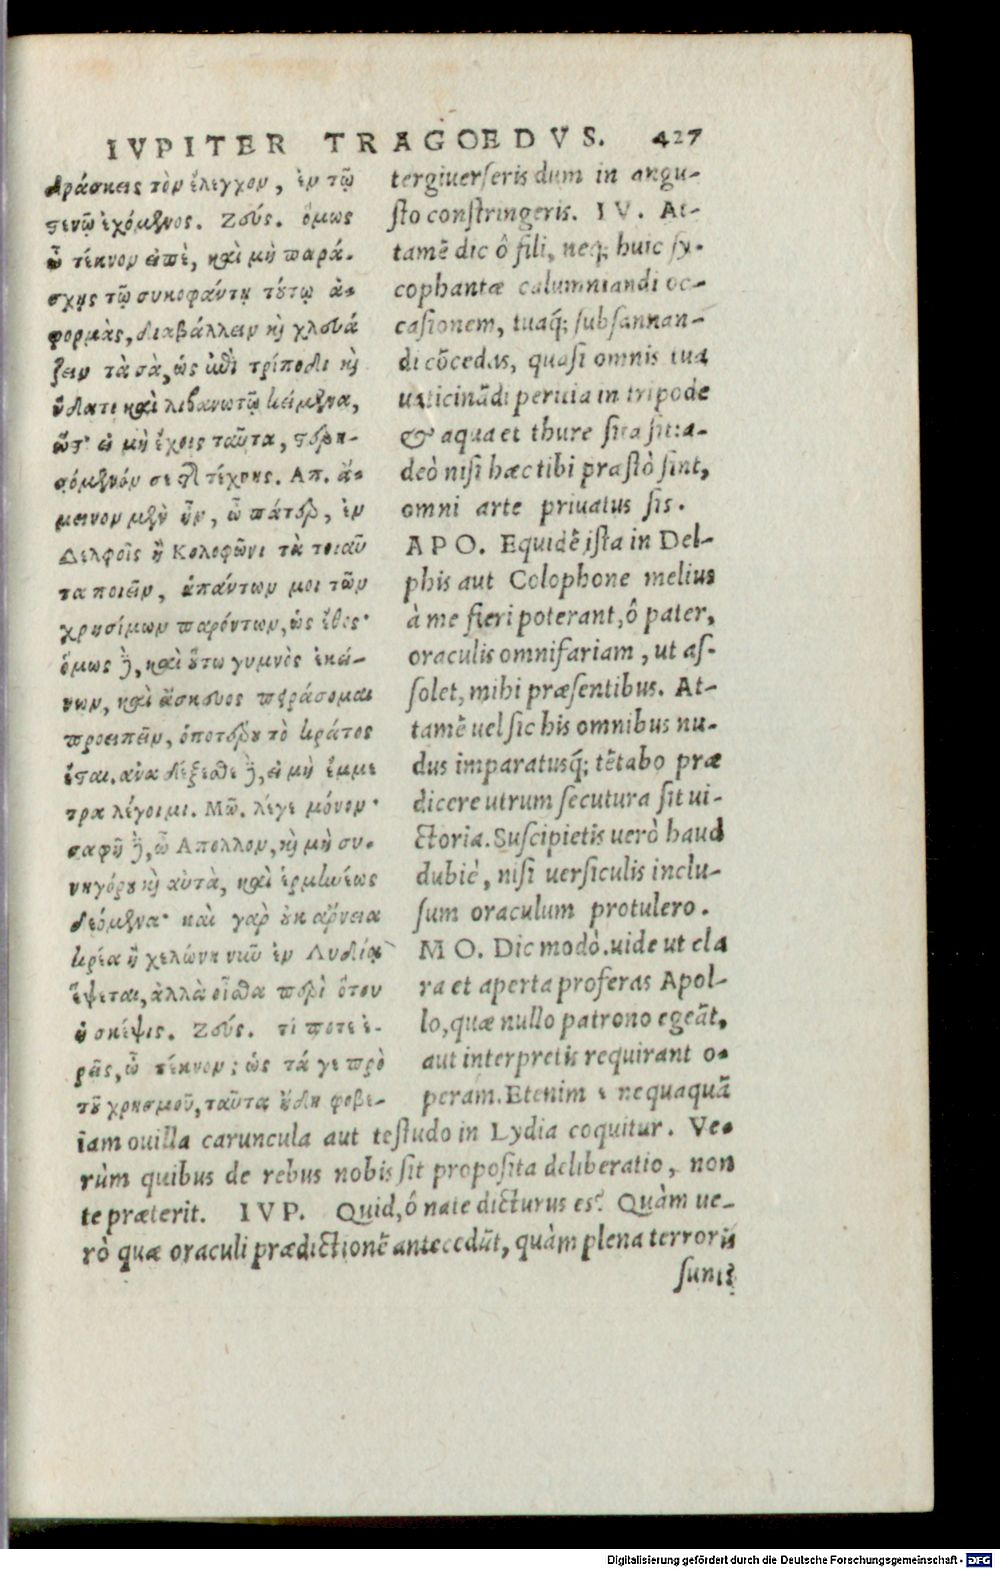 IVPITER TRAGOEDVS. 427
δράσκεις τὸν ἔλεγχον, ἐν τῷ
στενῷ ἐχόμενος. Ζεύς. ὅμως
ὦ τέκνον εἰπὲ, καὶ μὴ παρά-
σχῃς τῷ συκοφάντῃ τούτῳ ἀ-
φορμὰς, διαβάλλειν καὶ χλευά
ζειν τὰ σὰ, ὡς ἐπὶ τρίποδι καὶ
ὕδατι καὶ λιβανωτῷ κείμενα,
ὥστ' εἰ μὴ ἔχοις ταῦτα, στερη-
σόμενόν σε τῆς τέχνης. Απ. ἄ-
μεινον μὲν ἦν, ὦ πάτερ, ἐν
Δελφοῖς ἢ Κολοφῶνι τὰ τοιαῦ
τα ποιεῖν, ἁπάντων μοι τῶν
χρησίμων παρόντων, ὡς ἔθος·
ὅμως δὲ, καὶ οὕτω γυμνὸς ἐκεί-
νων, καὶ ἄσκευος πειράσομαι
προειπεῖν, ὁποτέρου τὸ κράτος
ἔσται. ἀνα δέξεσθε δὲ, εἰ μὴ ἔμμε
τρα λέγοιμι. Μῶ. λέγε μόνον·
σαφῆ δὲ, ὦ Απολλον, καὶ μὴ συ-
νηγόρου καὶ αὐτὰ, καὶ ἑρμηνέως
δεόμενα· καὶ γὰρ οὐκ ἄρνεια
κρέα ἢ χελώνη νῦν ἐν Λυδίᾳ
ἕψεται, ἀλλὰ οἶσθα περὶ ὅτου
ἡ σκέψις. Ζεύς. τί ποτε ἐ-
ρεῖς, ὦ τέκνον; ὡς τά γε πρὸ
τοῦ χρησμοῦ, ταῦτα ἤδη φοβε-
tergiuerseris dum in angu-
sto constringeris. IV. At-
tamē dic ô fili, neq; huic sy-
cophantæ calumniandi oc-
casionem, tuaq́; subsannan-
di cōcedas, quasi omnis tua
uaticinādi peruia in tripode
& aqua et thure sita sit: a-
deò nisi hæc tibi præstò sint,
omni arte priuatus sis.
APO. Equidē ista in Del-
phis aut Colophone melius
à me fieri poterant, ô pater,
oraculis omnifariam, ut as-
solet, mihi præsentibus. At-
tamē uel sic his omnibus nu-
dus imparatusq́; tētabo præ
dicere utrum secutura sit ui-
ctoria. Suscipietis uerò haud
dubiè, nisi uersiculis inclu-
sum oraculum protulero.
MO. Dic modò. uide ut cla
ra et aperta proferas Apol-
lo, quæ nullo patrono egeāt,
aut interpretis requirant o-
peram. Etenim nequaquā
iam ouilla caruncula aut testudo in Lydia coquitur. Ve-
rùm quibus de rebus nobis sit proposita deliberatio, non
te præterit. IVP. Quid, ô nate dicturus es? Quàm ue-
rò quæ oraculi prædictionē antecedūt, quàm plena terroris
sunt?
Digitalisierung gefördert durch die Deutsche Forschungsgemeinschaft - DFG